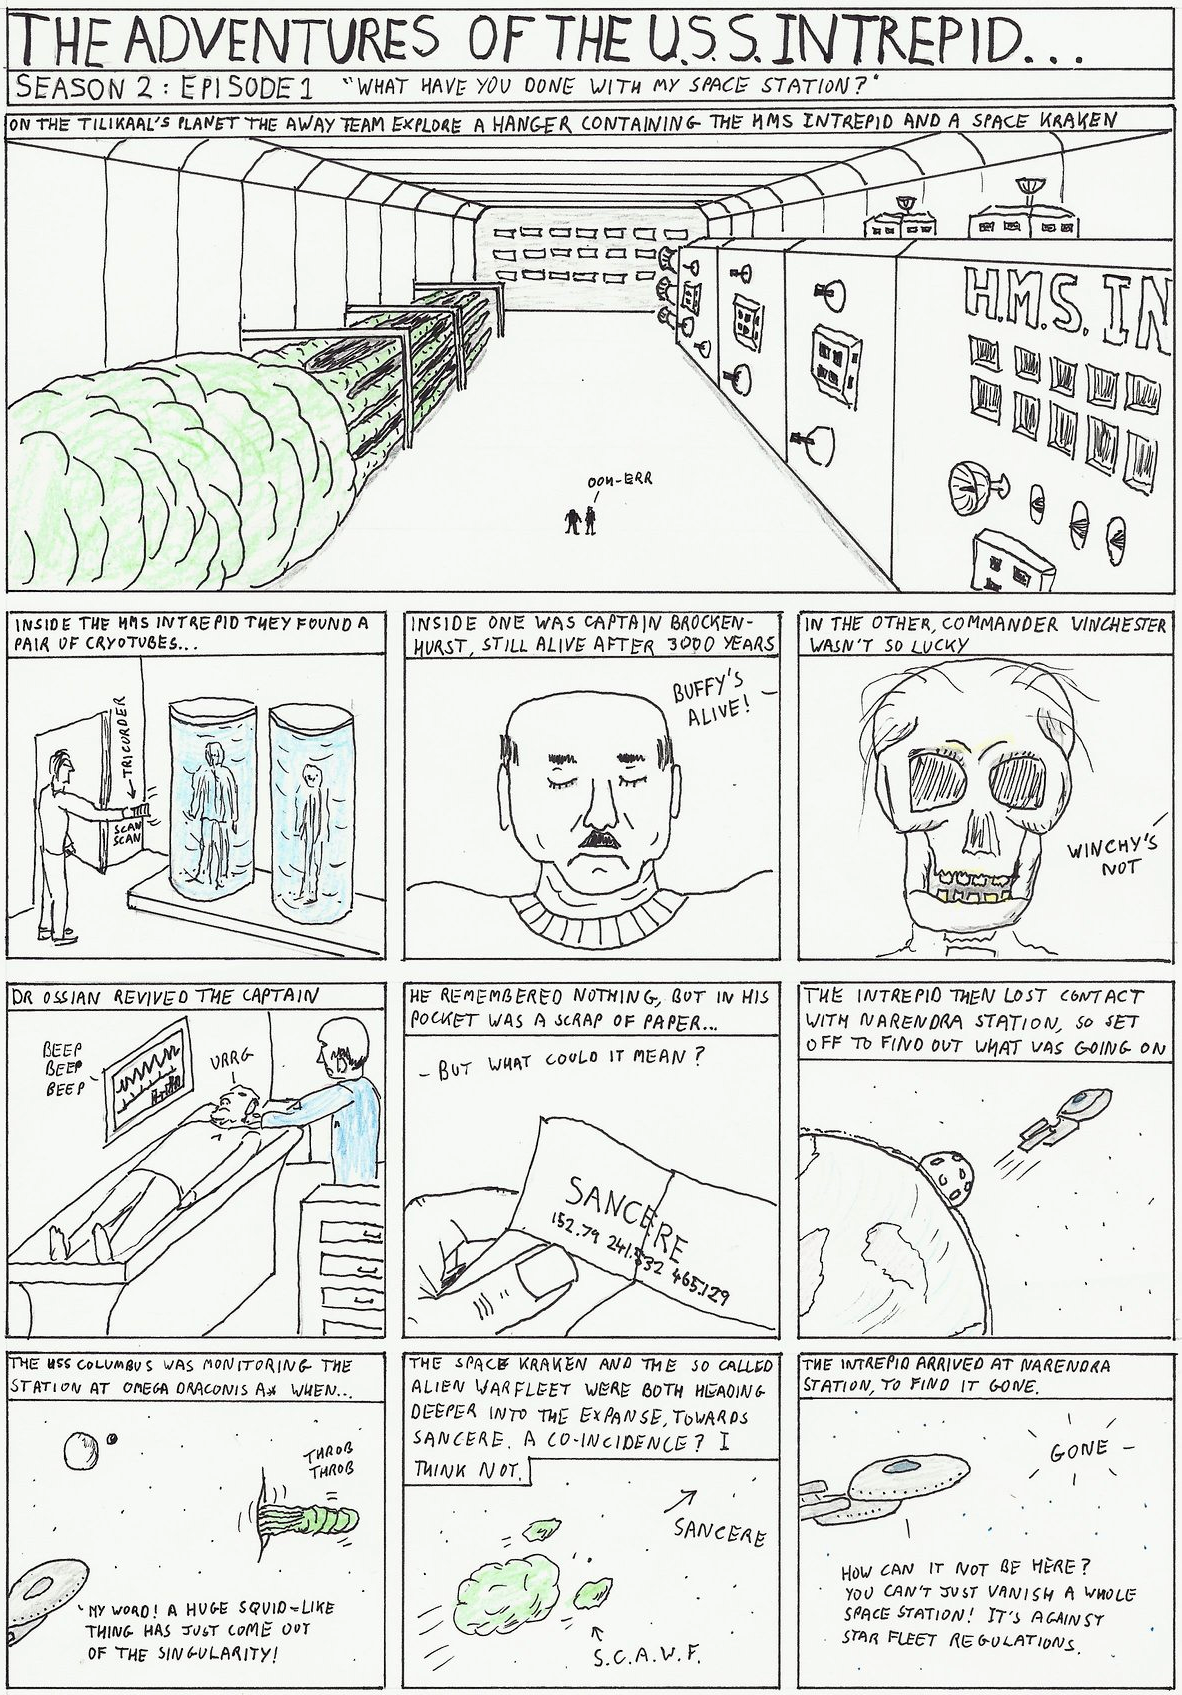 THE ADVENTURES OF THE U.S.S. INTREPID...
SEASON 2: EPISODE 1 "WHAT HAVE YOU DONE WITH MY SPACE STATION?"
ON THE TILIKAAL'S PLANET THE AWAY TEAM EXPLORE A HANGER CONTAINING THE HMS INTREPID AND A SPACE KRAKEN
H.M.S. IN
OOH-ERR
INSIDE THE HMS INTREPID THEY FOUND A
PAIR OF CRYOTUBES...
TRICORDER
SCAN
SCAN
INSIDE ONE WAS CAPTAIN BROCKEN-
HURST, STILL ALIVE AFTER 3000 YEARS
BUFFY'S
ALIVE!
IN THE OTHER, COMMANDER WINCHESTER
WASN'T SO LUCKY
WINCHY'S
NOT
DR OSSIAN REVIVED THE CAPTAIN
BEEP
BEEP
BEEP
URRG
HE REMEMBERED NOTHING, BUT IN HIS
POCKET WAS A SCRAP OF PAPER...
BUT WHAT COULD IT MEAN?
SANCERE
152.79 241.532 465.129
THE INTREPID THEN LOST CONTACT
WITH NARENDRA STATION, SO SET
OFF TO FIND OUT WHAT WAS GOING ON
THE USS COLUMBUS WAS MONITORING THE
STATION AT OMEGA DRACONIS A* WHEN...
THROB
THROB
MY WORD! A HUGE SQUID-LIKE
THING HAS JUST COME OUT
OF THE SINGULARITY!
THE SPACE KRAKEN AND THE SO CALLED
ALIEN WARFLEET WERE BOTH HEADING
DEEPER INTO THE EXPANSE, TOWARDS
SANCERE. A CO-INCIDENCE? I
THINK NOT.
SANCERE
S.C.A.W.F.
THE INTREPID ARRIVED AT NARENDRA
STATION, TO FIND IT GONE.
GONE
HOW CAN IT NOT BE HERE?
YOU CAN'T JUST VANISH A WHOLE
SPACE STATION! IT'S AGAINST
STAR FLEET REGULATIONS.